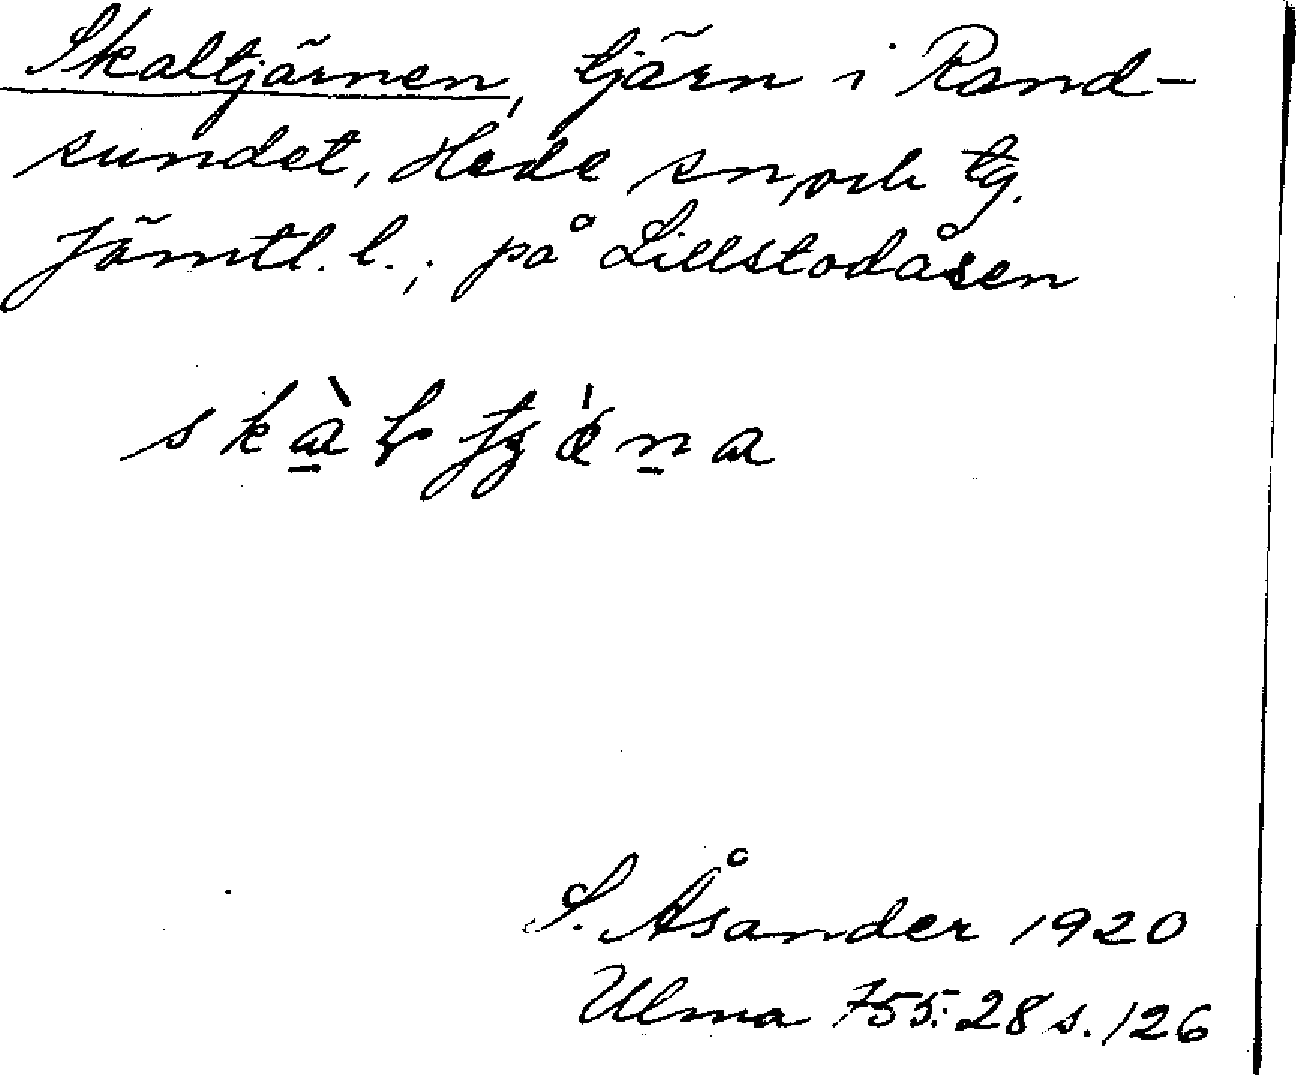 Skaltjärnen, tjärn i Rand-
sundet, Hede sn och tg.
Jämtl. l.; på Lillstodåsen
S. Åsander 1920
Ulma 755:28 s. 126